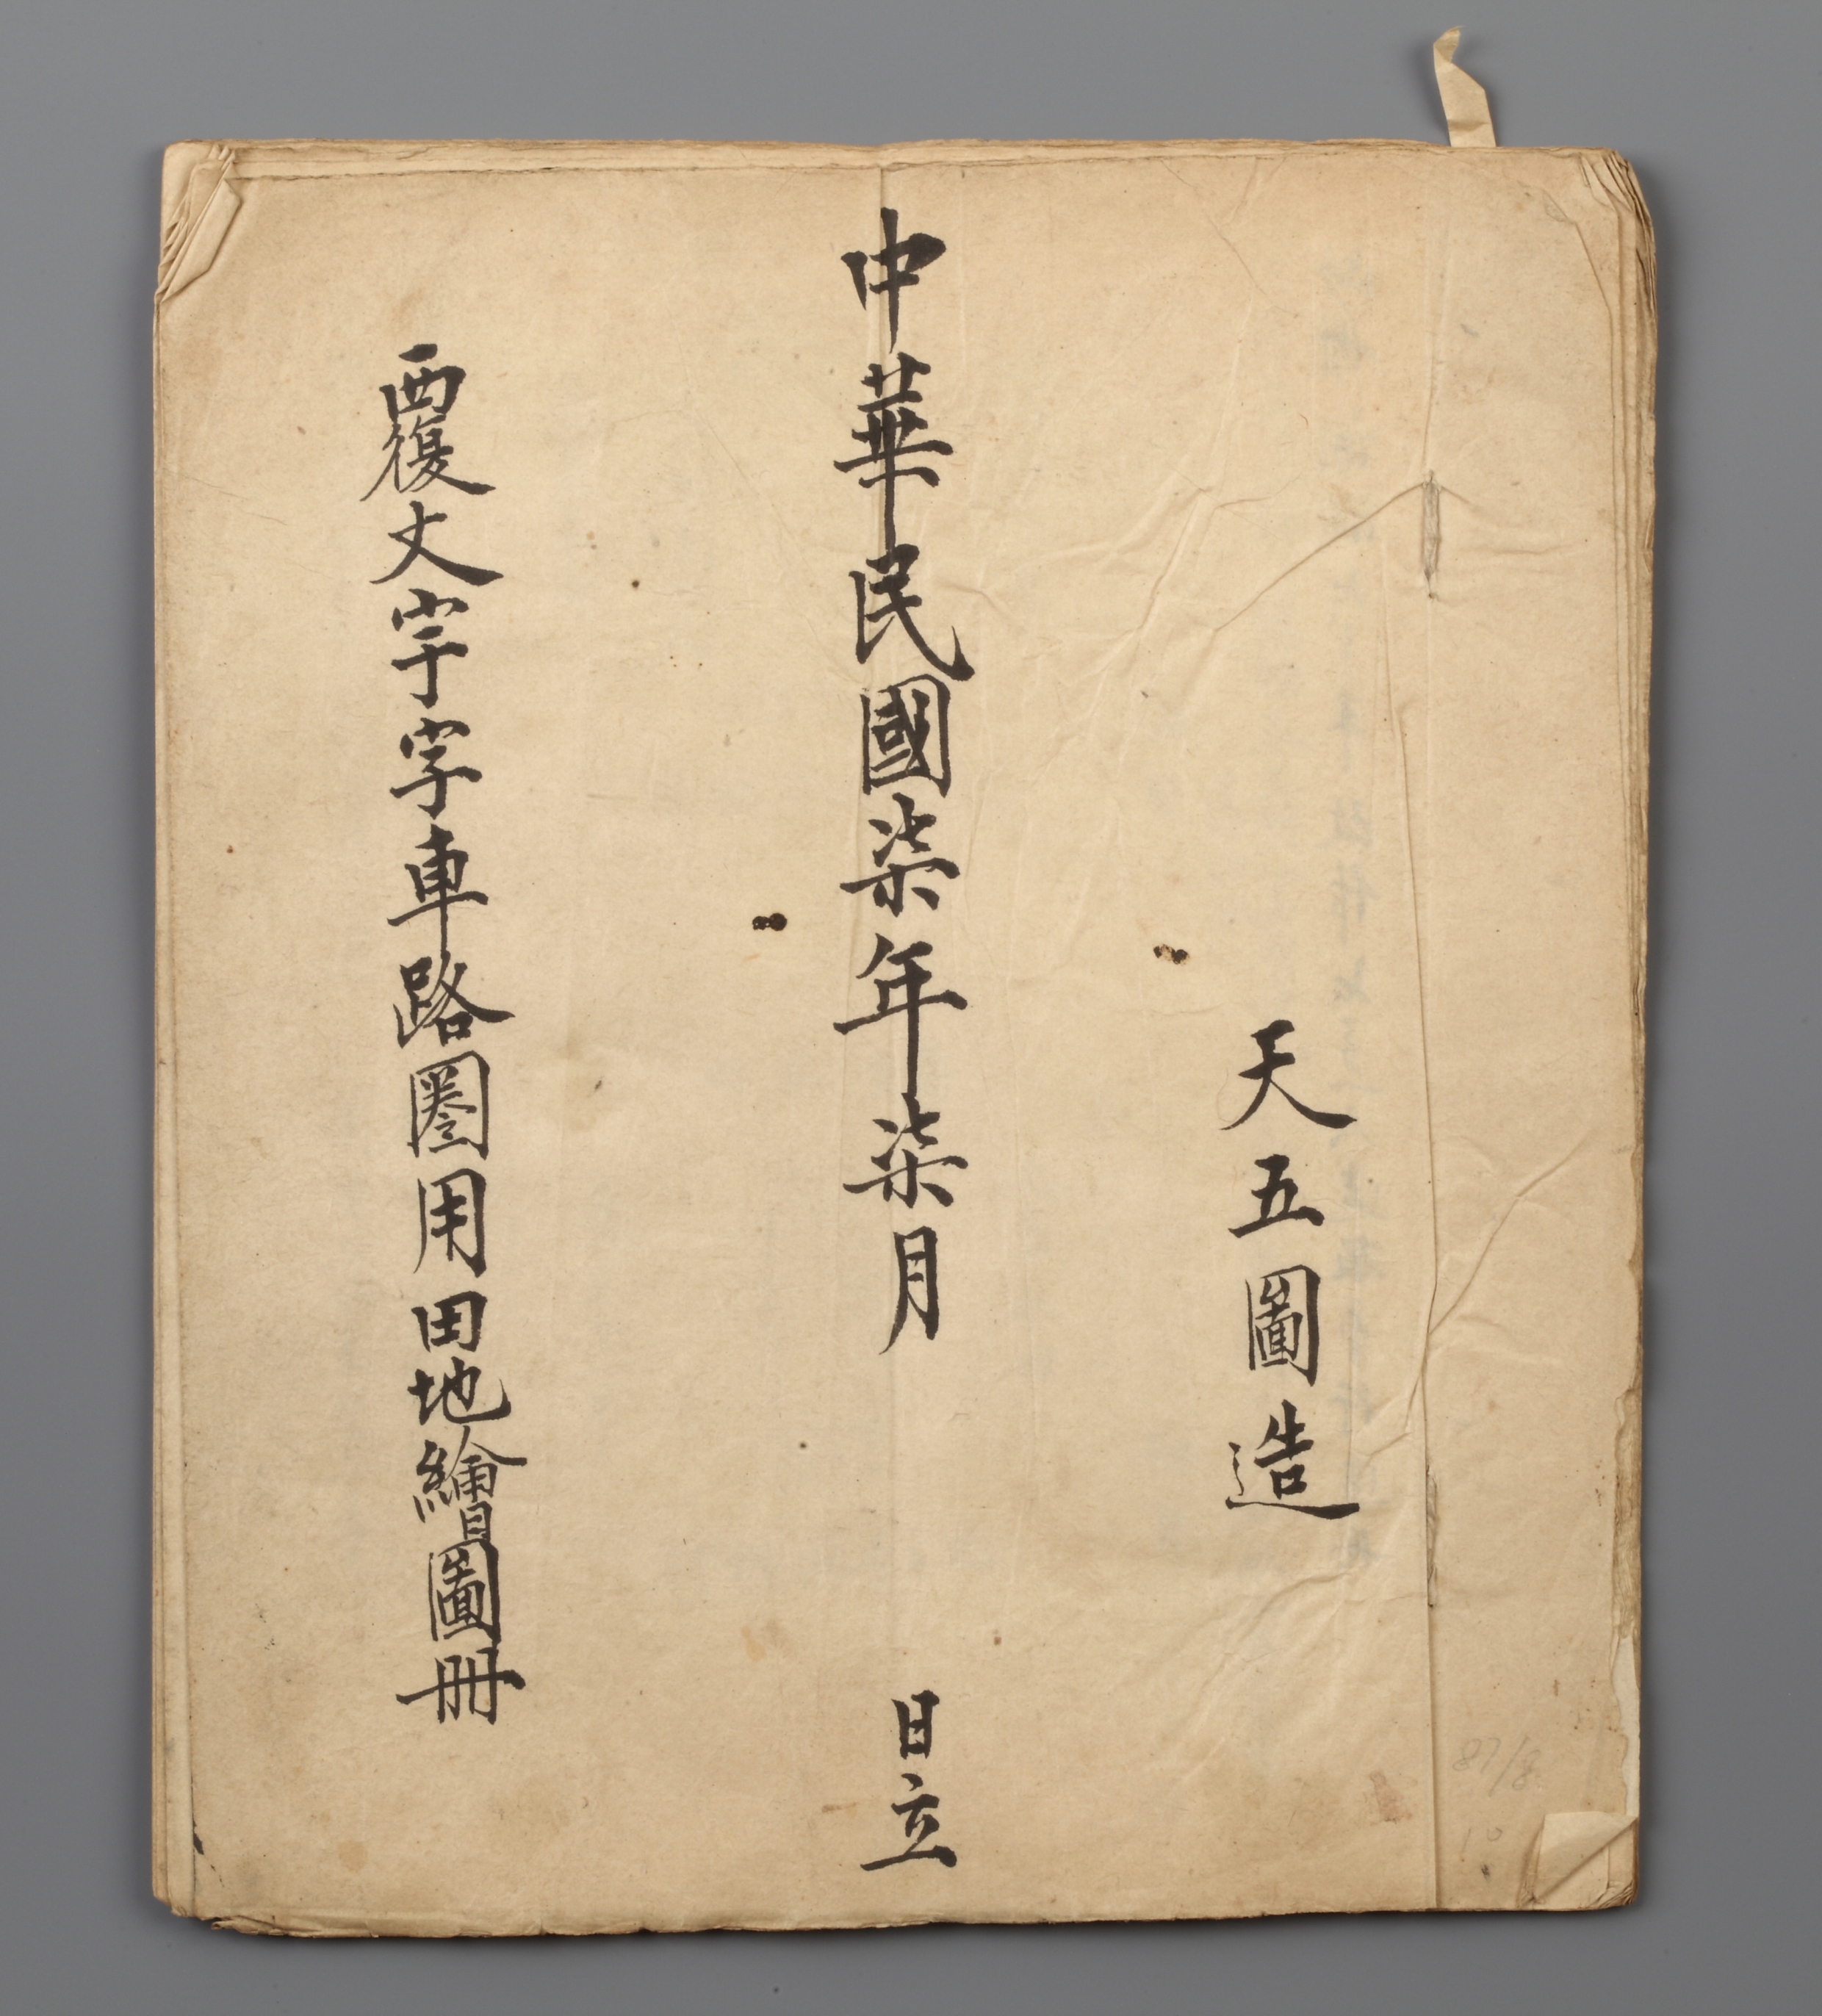 天五圖造
中華民國柒年柒月 日立
西復丈宇字車路圈用田地繪圖冊
87/8
10